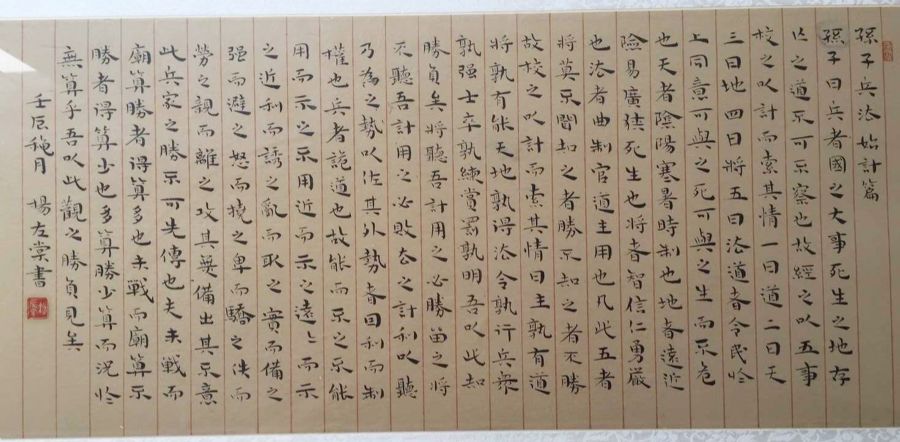 孫子兵法始計篇
孫子曰兵者國之大事死生之地存
亾之道不可不察也故經之以五事
校之以計而索其情一曰道二曰天
三曰地四曰將五曰法道者令民於
上同意可與之死可與之生而不危
也天者陰陽寒暑時制也地者遠近
險易廣狹死生也將者智信仁勇嚴
也法者曲制官道主用也凡此五者
將莫不聞知之者勝不知之者不勝
故校之以計而索其情曰主孰有道
將孰有能天地孰得法令孰行兵衆
孰强士卒孰練賞罰孰明吾以此知
勝負矣將聽吾計用之必勝留之將
不聽吾計用之必敗去之計利以聽
乃為之勢以佐其外勢者因利而制
權也兵者詭道也故能而示之不能
用而示之不用近而示之遠々而示
之近利而誘之亂而取之實而備之
强而避之怒而撓之卑而驕之佚而
勞之親而離之攻其無備出其不意
此兵家之勝不可先傳也夫未戰而
廟算勝者得算多也未戰而廟算不
勝者得算少也多算勝少算而況於
無算乎吾以此觀之勝負見矣
壬辰穐月 楊左棠書